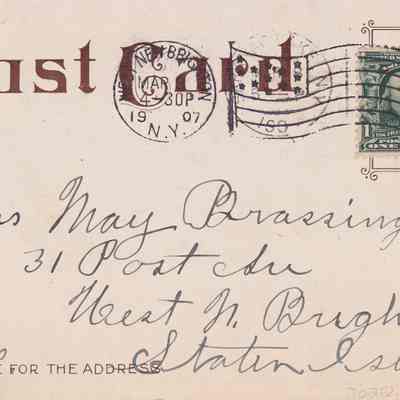 ost Card
WEST NEW BRIGHTON
MAR
4-30P
1907
N.Y.
190
1
ONE
s May Brassing
31 Post Av
West N. Brigh
Staten Isl
E FOR THE ADDRESS